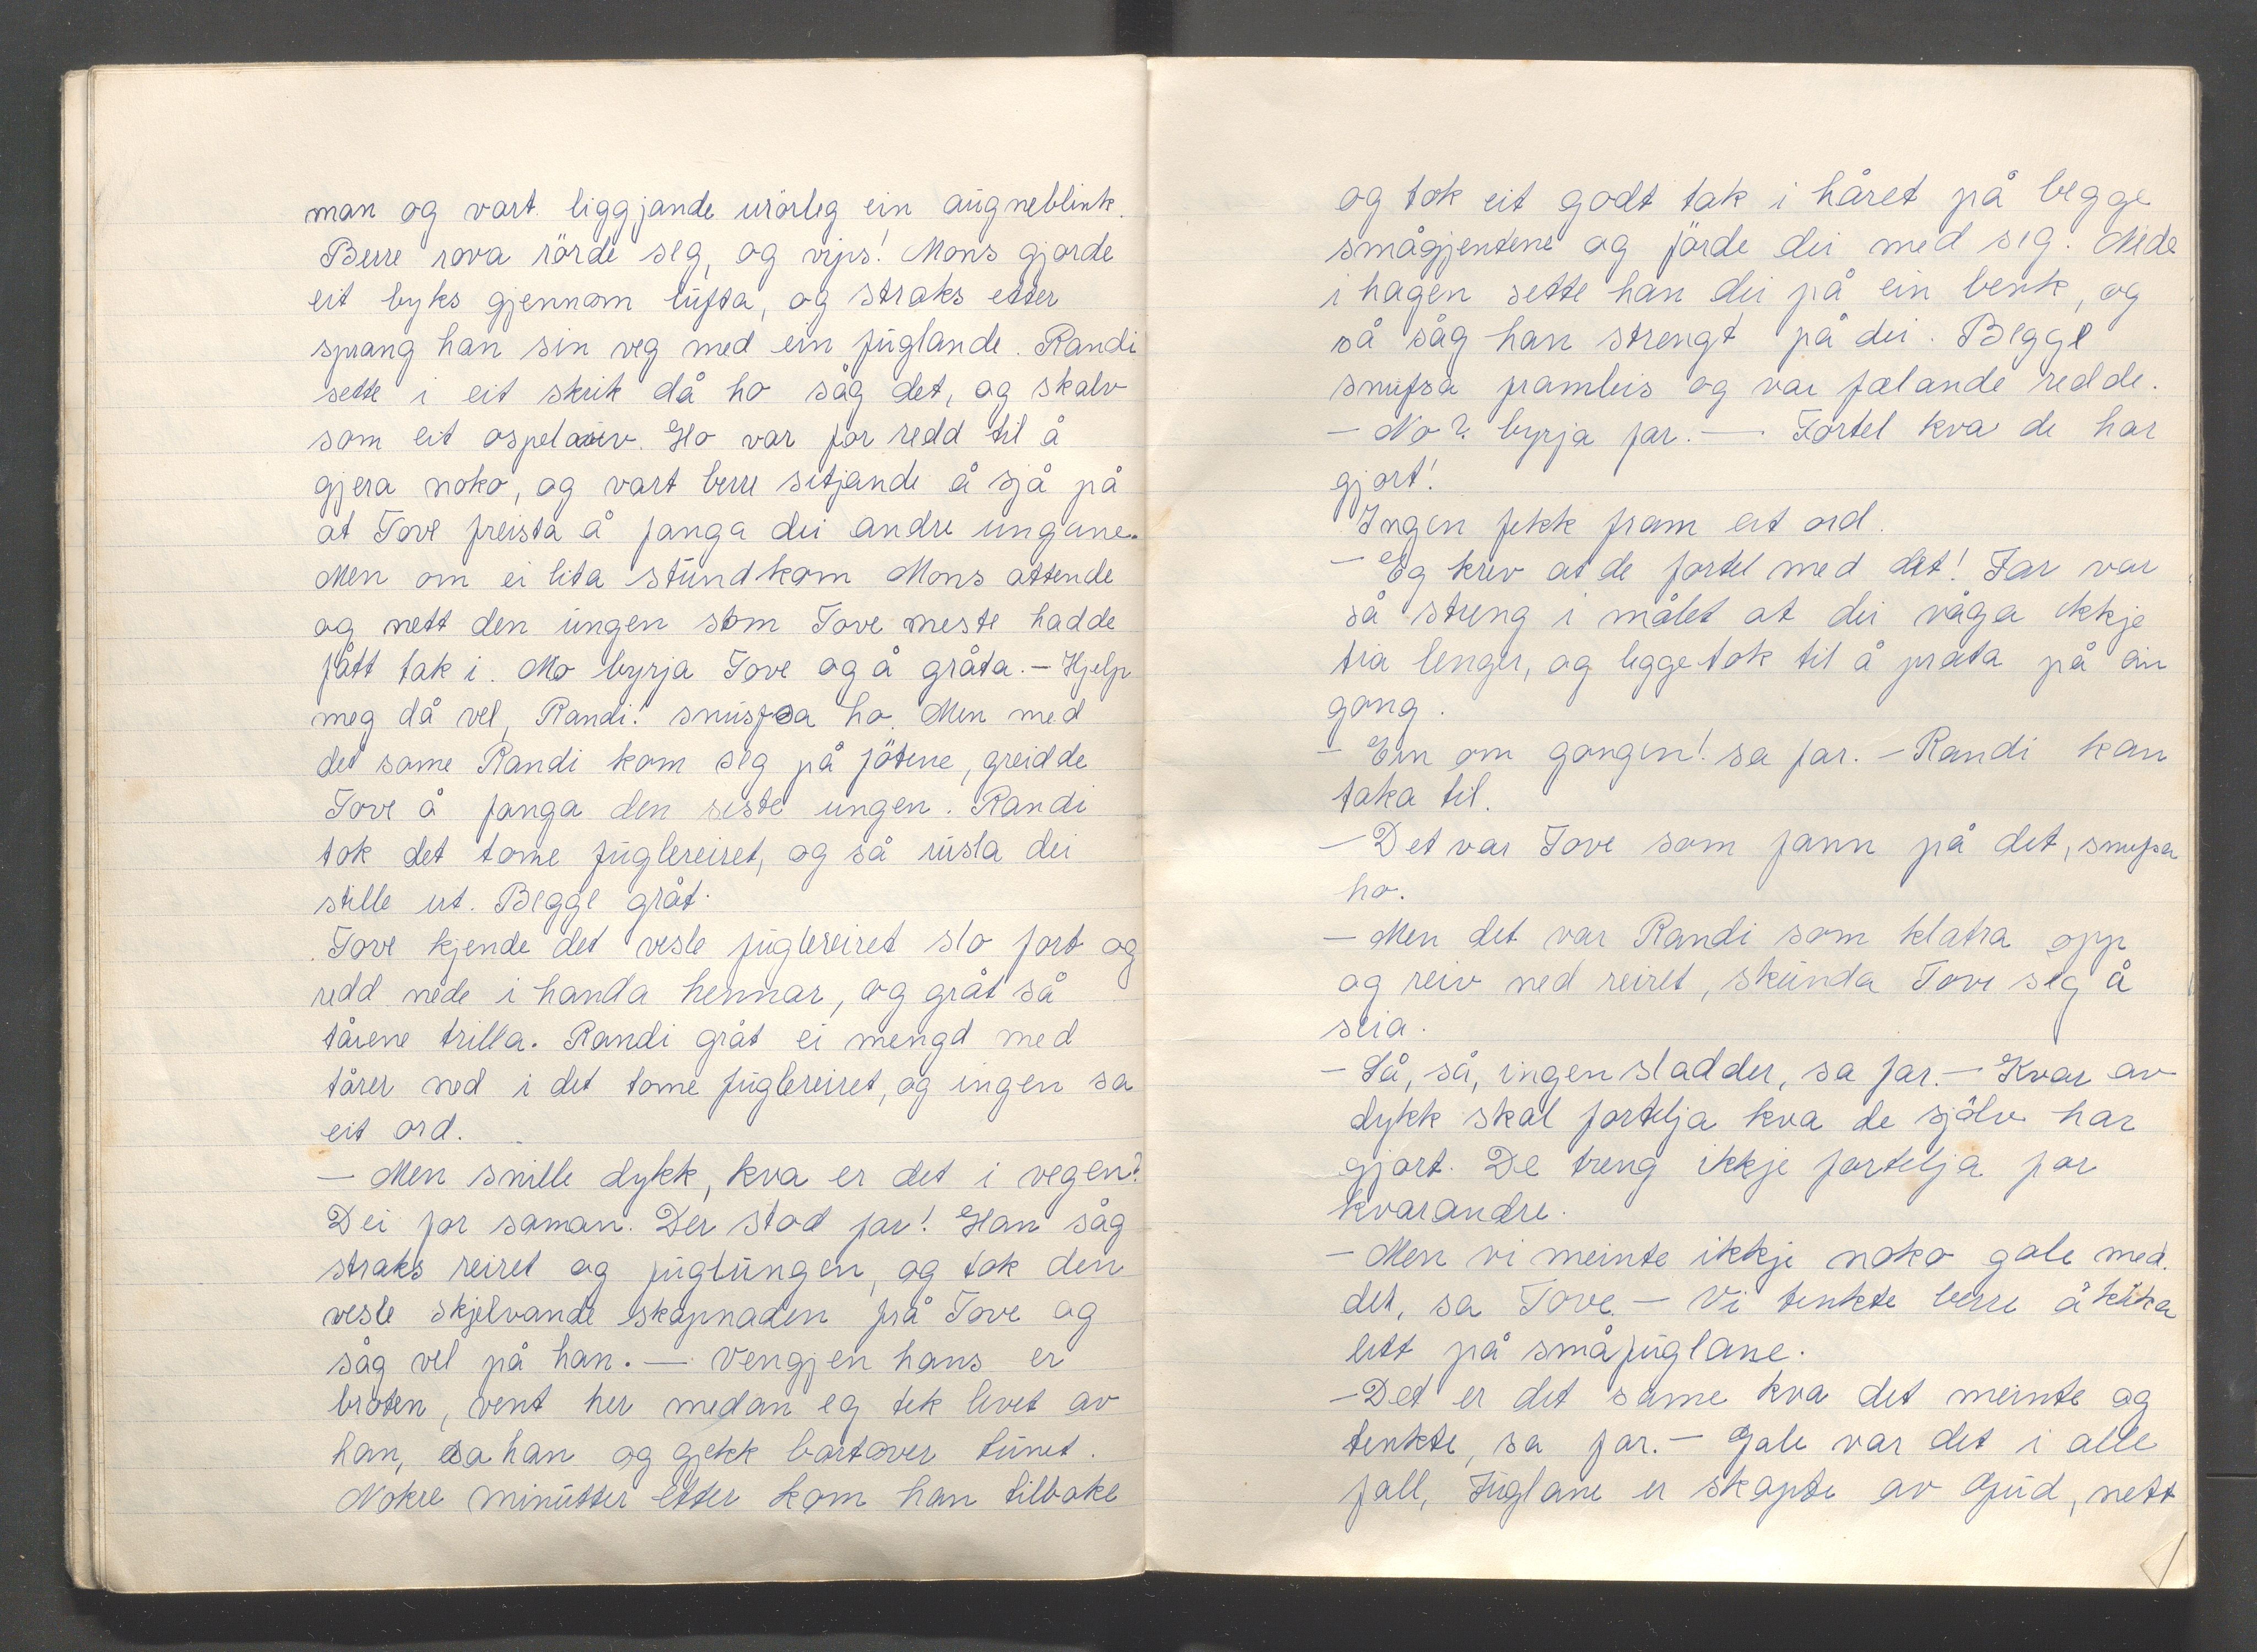 man og vart liggjande urörleg ein augneblink.
Berre rova rörde seg, og vips! Mons gjorde
eit byks gjennom lufta, og straks etter
sprang han sin veg med ein fuglande. Randi
sette i eit skrik då ho såg det, og skalv
som eit ospelauv. Ho var for redd til å
gjera noko, og vart berre sitjande å sjå på
at Tove freista å fanga dei andre ungane.
Men om ei lita stund kom Mons attende
og nett den ungen som Tove meste hadde
fått tak i. No byrja Tove og å gråta. - Hjelp
meg då vel, Randi! snufsa ho. Men med
det same Randi kom seg på fötene, greidde
Tove å fanga den siste ungen. Randi
tok det tome fuglereiret, og så rusla dei
stille ut. Begge gråt.
Tove kjende det vesle fuglereiret slo fort og
redd nede i handa hennar, og gråt så
tårene trilla. Randi gråt ei mengd med
tårer ned i det tome fuglereiret, og ingen sa
eit ord.
- Men snille dykk, kva er det i vegen?
Dei for saman. Der stod far! Han såg
straks reiret og fuglungen, og tok den
vesle skjelvande skapnaden frå Tove og
såg vel på han. - Vengjen hans er
broten, vent her medan eg tek livet av
han, sa han og gjekk bortover tunet.
Nokre minutter etter kom han tilbake
og tok eit godt tak i håret på begge
smågjentene og förde dei med seg. Nede
i hagen sette han dei på ein benk, og
så såg han strengt på dei. Begge
snufsa framleis og var fælande redde.
- No? byrja far. - Fortel kva de har
gjort!
Ingen fekk fram eit ord.
- Eg krev at de fortel med det! Far var
så streng i målet at dei våga ikkje
tria lenger, og begge tok til å prata på ein
gong.
- Ein om gongen! sa far. - Randi kan
taka til.
- Det var Tove som fann på det, snufsa
ho.
- Men det var Randi som klatra opp
og reiv ned reiret, skunda Tove seg å
seia.
- Så, så, ingen sladder, sa far. - Kvar av
dykk skal fortelja kva de sjölv har
gjort. De treng ikkje fortelja for
kvarandre.
- Men vi meinte ikkje noko gale med
det, sa Tove. - Vi tenkte berre å kika
litt på småfuglane.
- Det er det same kva det meinte og
tenkte, sa far. - Gale var det i alle
fall, Fuglane er skapte av Gud, nett